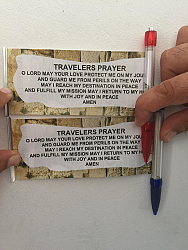 TRAVELERS PRAYER
O LORD MAY YOUR LOVE PROTECT ME ON MY JOU
AND GUARD ME FROM PERILS ON THE WAY
MAY I REACH MY DESTINATION IN PEACE
AND FULFILL MY MISSION MAY I RETURN TO MY H
WITH JOY AND IN PEACE
AMEN
TRAVELERS PRAYER
O LORD MAY YOUR LOVE PROTECT ME ON MY JOU
AND GUARD ME FROM PERILS ON THE WAY
MAY I REACH MY DESTINATION IN PEACE
AND FULFILL MY MISSION MAY I RETURN TO MY HO
WITH JOY AND IN PEACE
AMEN